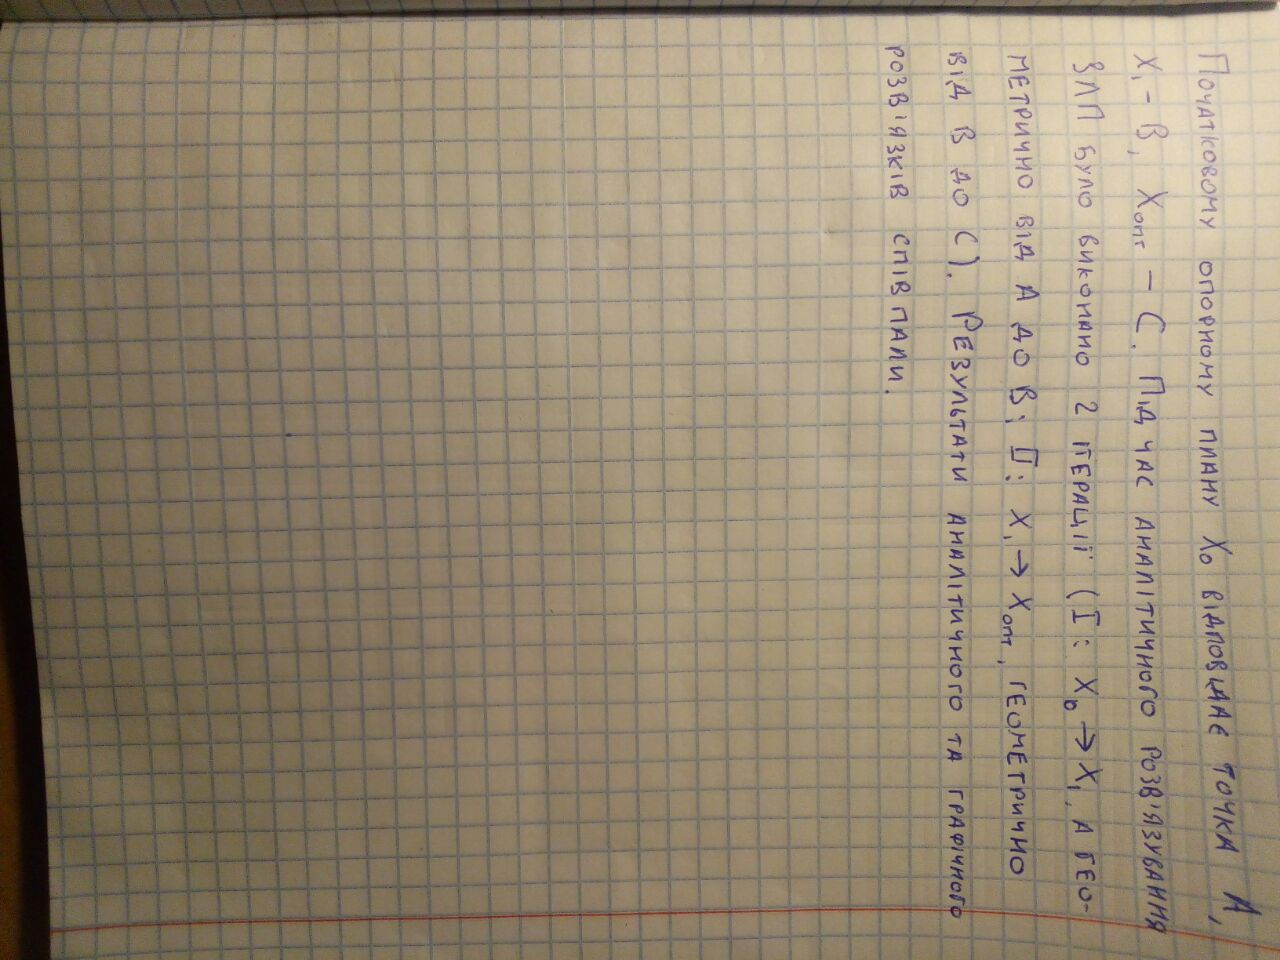 Початковому опорному плану X₀ відповідає точка A,
X₁ - B, Xопт - C. Під час аналітичного розв'язування
ЗЛП було виконано 2 ітерації (I: X₀ → X₁, а гео-
метрично від A до B; II: X₁ → Xопт, геометрично
від B до C). Результати аналітичного та графічного
розв'язків співпали.